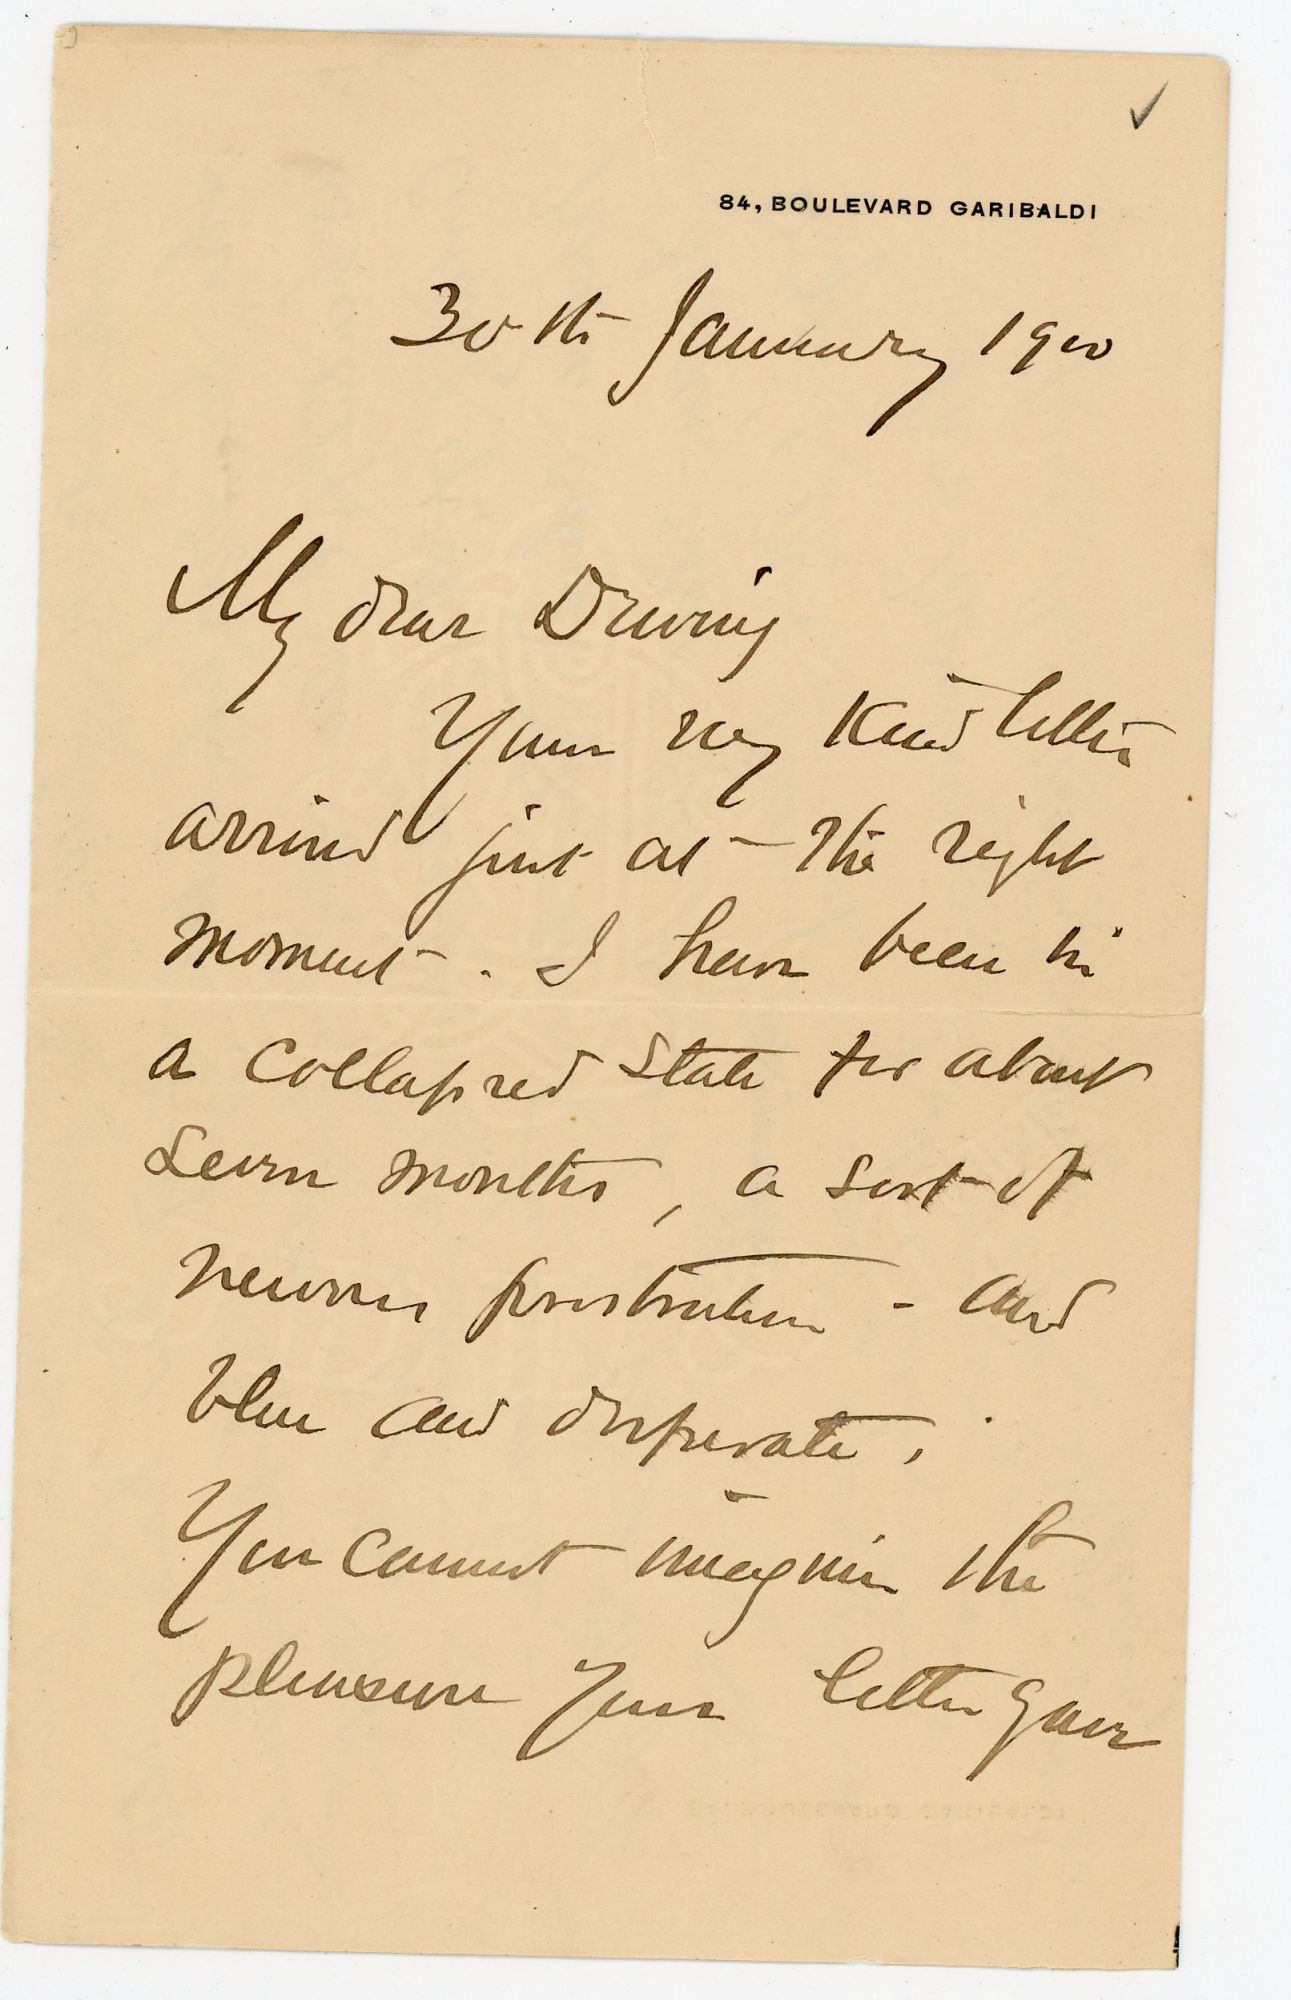 84, BOULEVARD GARIBALDI
30th January 1900
My dear Dewing
Your very kind letter
arrived just at the right
moment. I have been in
a collapsed state for about
seven months, a sort of
nervous prostration - and
blue and desperate.
You cannot imagine the
pleasure your letter gave